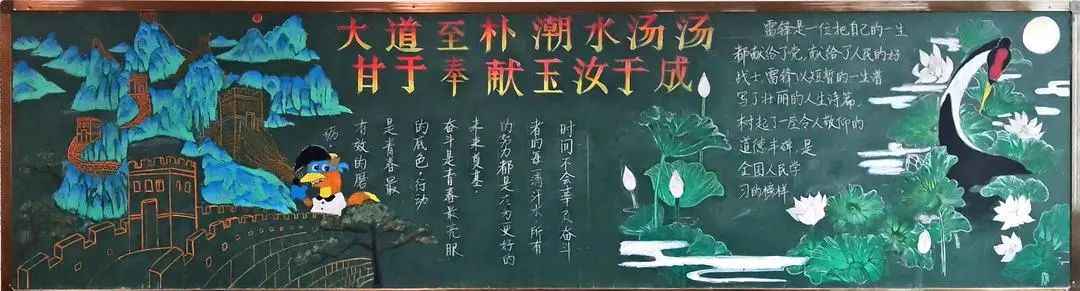 大道至朴潮水汤汤
甘于奉献玉汝于成
时间不会辜负奋斗
者的每一滴汗水,所有
的努力都是在为更好的
未来奠基.
奋斗是青春最亮
的底色,行动
是青春最
有效的磨
砺.
雷锋是一位把自己的一生
都献给了党,献给了人民的好
战士雷锋以短暂的一生谱
写了壮丽的人生诗篇,
树起了一座令人敬仰的
道德丰碑 是
全国人民学
习的榜样